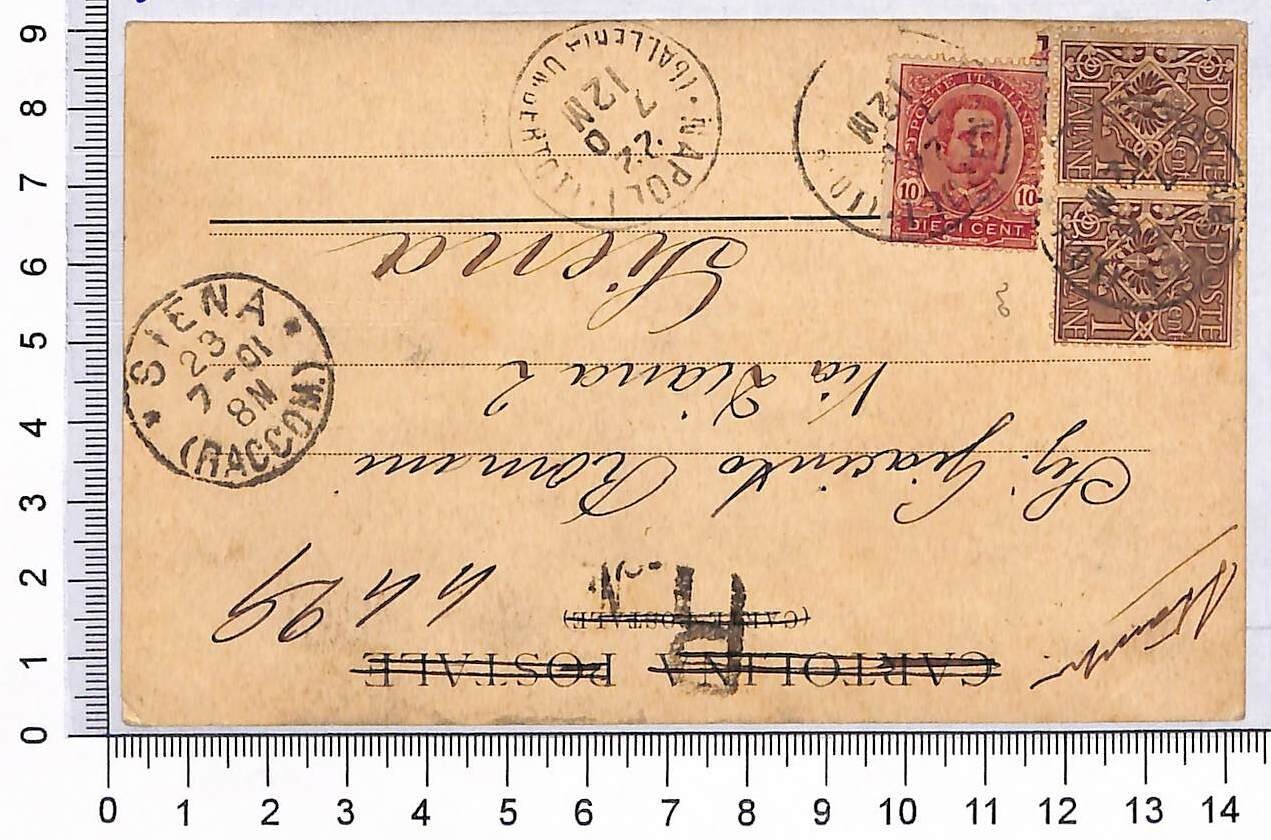 CARTOLINA POSTALE
(CARTE POSTALE)
R
4429
Sig. Giacinto Romani
Via Diana 2
Siena
SIENA
23
7-01
8N
(RACCOM.)
NAPOLI
22
7
12M
(GALLERIA UMBERTO I)
POSTE ITALIANE
10 10
DIECI CENT.
POSTE
ITALIANE
Cen
1
POSTE
ITALIANE
Cen
1
12M
3
9
8
7
6
5
4
3
2
1
0
0 1 2 3 4 5 6 7 8 9 10 11 12 13 14